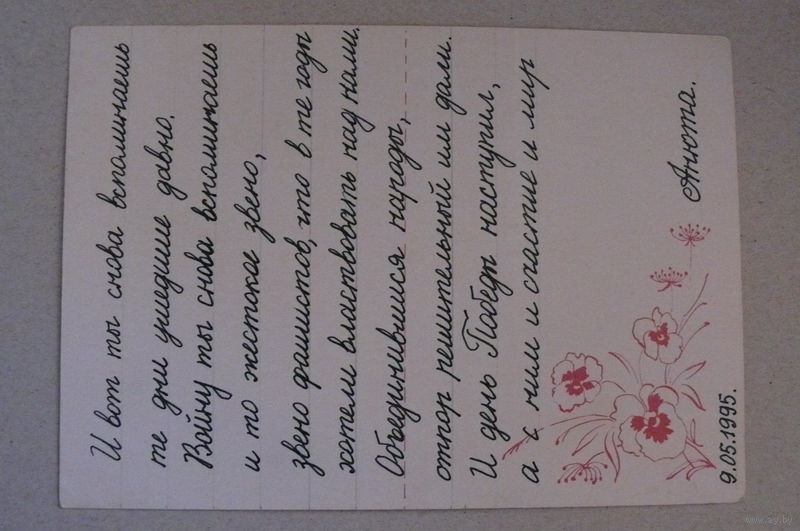 И вот ты снова вспоминаешь
те дни ушедшие давно.
Войну ты снова вспоминаешь
и то жестокое звено,
звено фашистов, что в те годы
хотели властвовать над нами.
Объединившися народы,
отпор решительный им дали.
И день Победы наступил,
а с ним и счастие и мир
Анюта.
9.05.1995.
www.ay.by